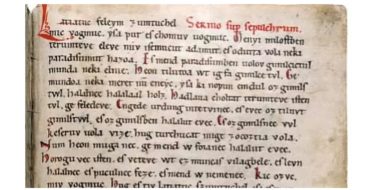 Latiatuc feleym zumtuchel Sermo sup sepulchrum.
mic vogmuc. ysa pur es chomuv uogmuc. Menyi milostben
terumteve eleve miv isemucut adamut. es odutta vola neki
paradisumut hazoa. Es mend paradisumben uolov gimilcictul
munda neki elnie. Heon tilutoa wt ig fa gimilce tvl. Ge
mundoa neki meret nu eneyc. ysa ki nopun emdul oz gimils
twl. halalnec halalaal holz. Hadlaua choltat terumteve isten
tvl. ge feledeve. Engede urdung intetvinec. es evec oz tiluvt
gimilstwl. es oz gimilsben halalut evec. Es oz gimilsnec vvl
keseruv uola vize. hug turchucat mige zocoztia vola.
Num heon muga nec. ge mend w foianec halalut evec.
Horogu vec isten. es veteve wt ez muncas vilagbele. es levn
halalnec es puculnec feze. es mend w nemenec. Kic ozvc.
miv vogmuc.